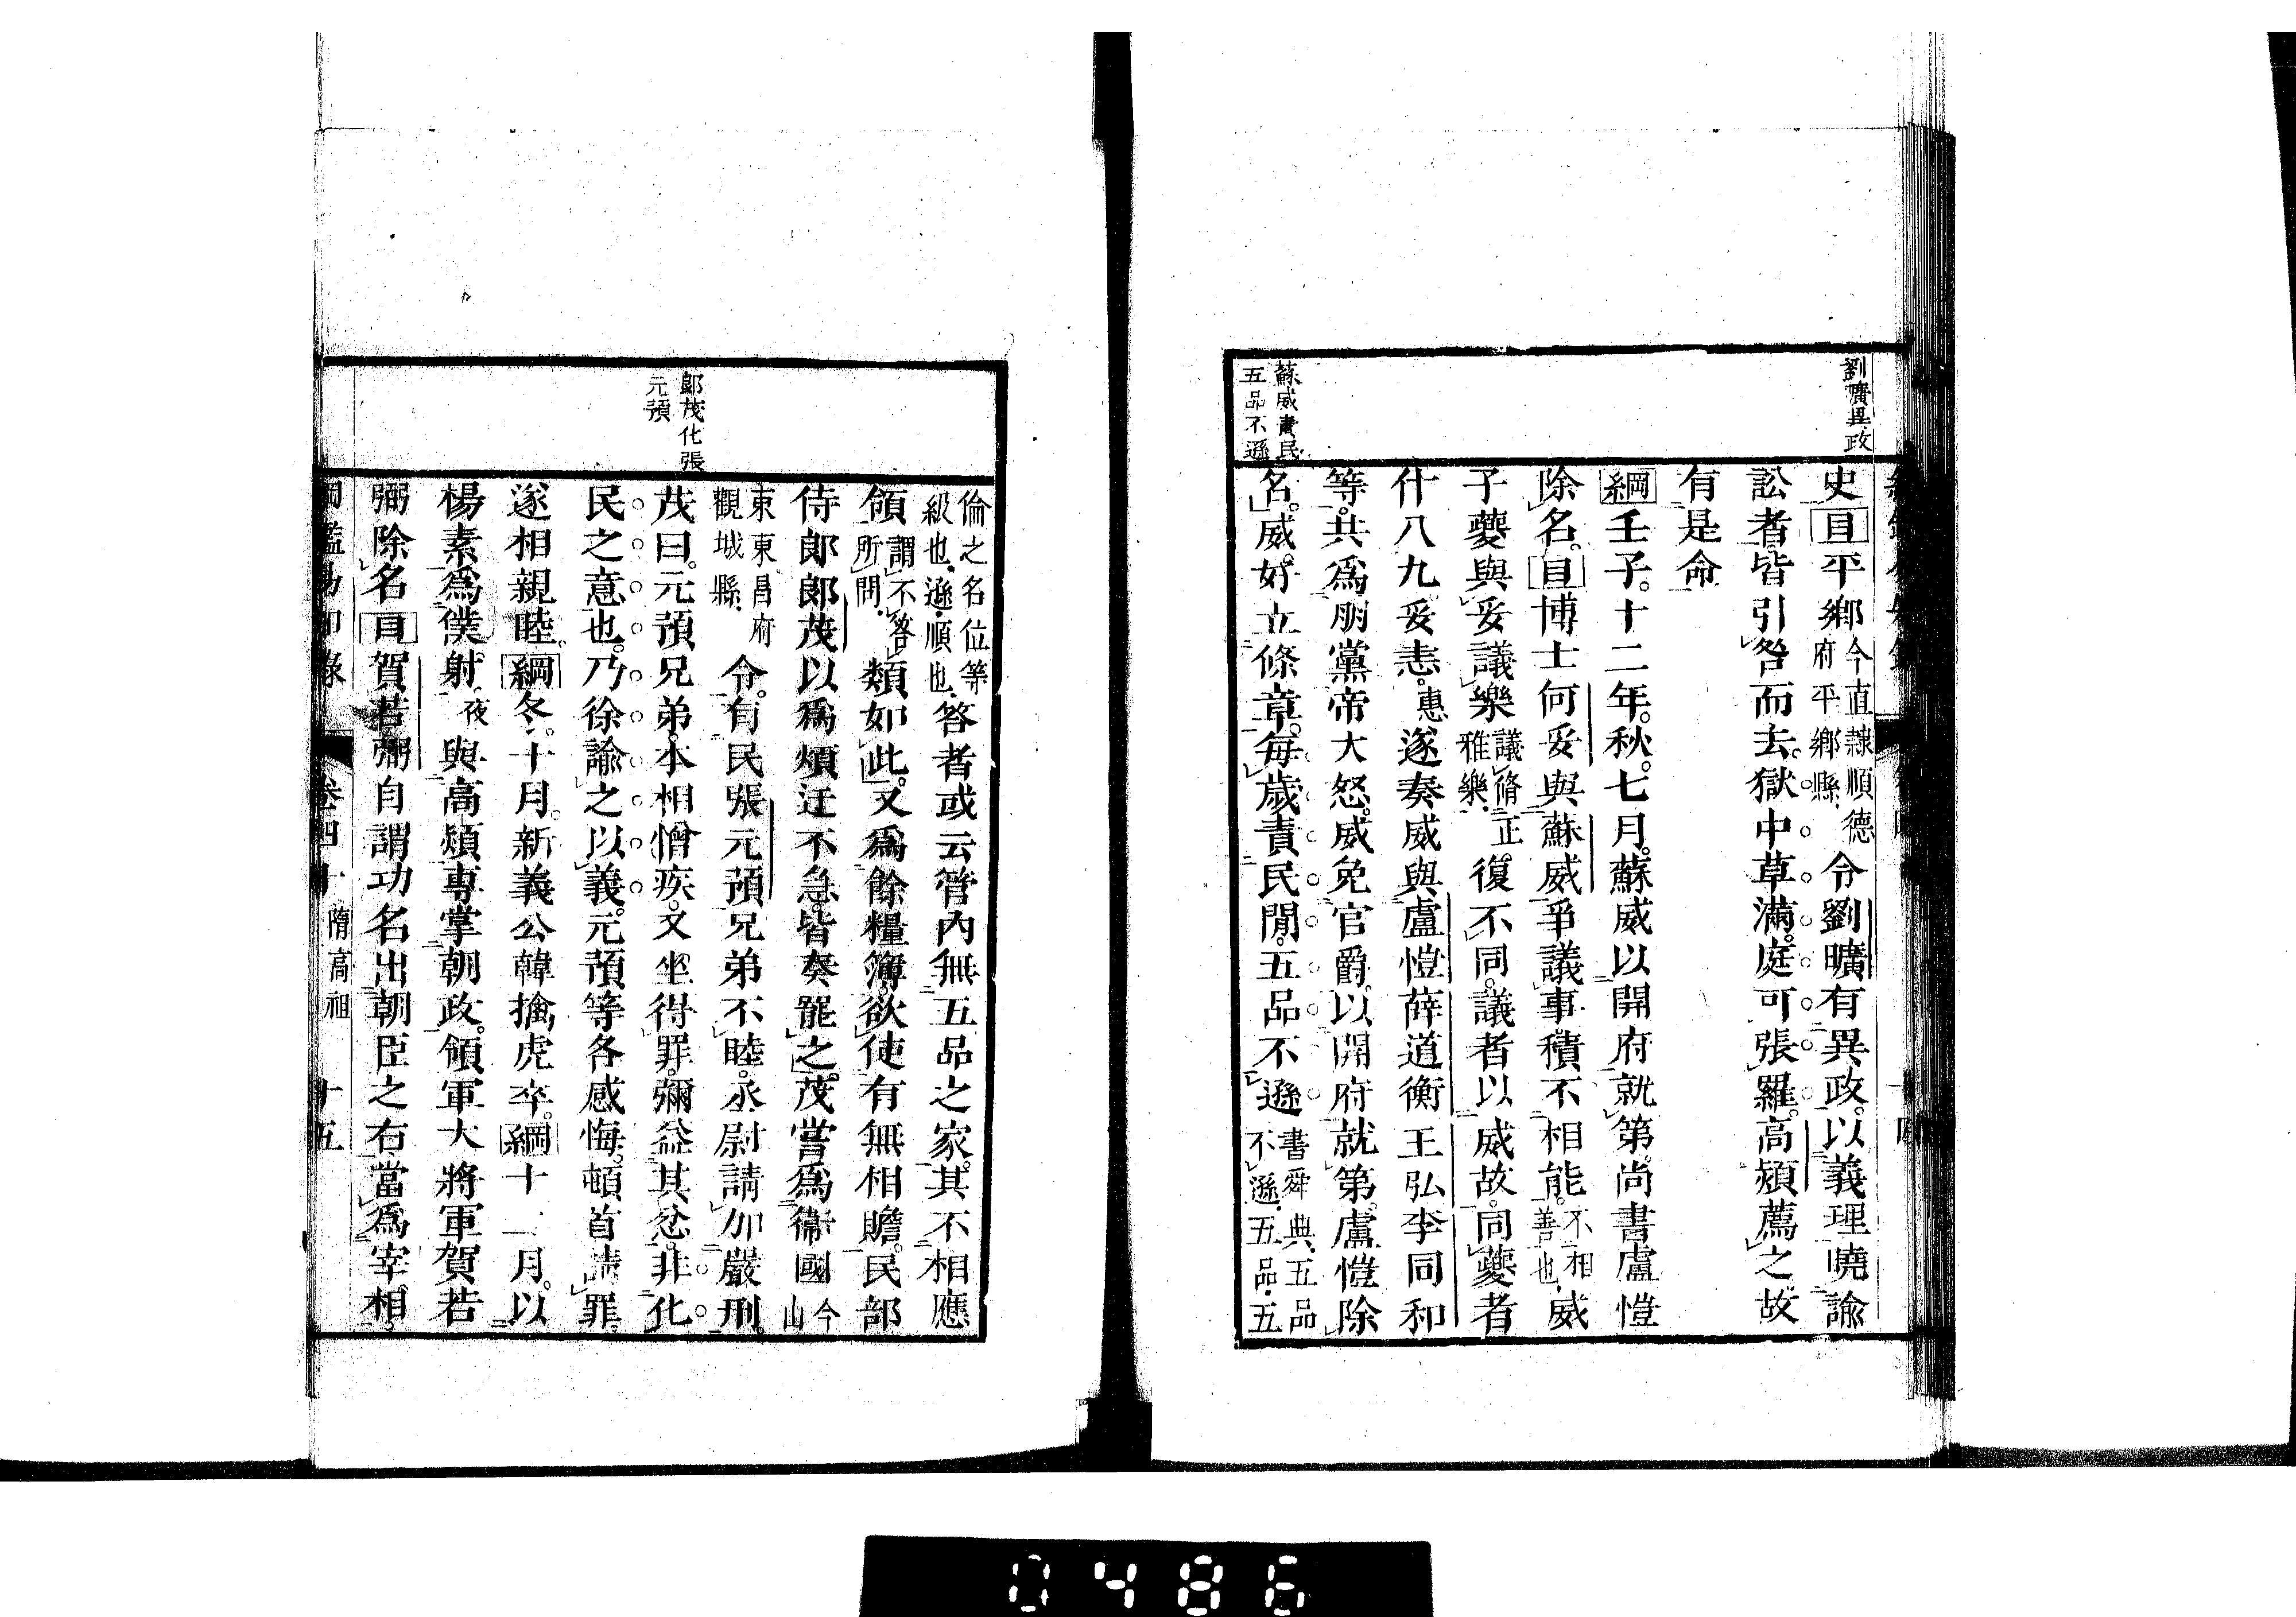 劉曠異政
蘇威責民
五品不遜
史目平鄉今直隷順德府平鄉縣令劉曠有異政以義理曉諭
訟者皆引咎而去獄中草滿庭可張羅高熲薦之故
有是命
綱壬子十二年秋七月蘇威以開府就第尚書盧愷
除名目博士何妥與蘇威爭議事積不相能不相善也威
子夔與妥議樂議脩正雅樂復不同議者以威故同夔者
什八九妥恚惠遂奏威與盧愷薛道衡王弘李同和
等共爲朋黨帝大怒威免官爵以開府就第盧愷除
名威好立條章每歲責民閒五品不遜書舜典五品不遜五品五
郞茂化張
元預
倫之名位等級也遜順也答者或云管內無五品之家其不相應
領謂不答所問類如此又爲餘糧簿欲使有無相贍民部
侍郞郞茂以爲煩迂不急皆奏罷之茂嘗爲衞國今山
東東昌府觀城縣令有民張元預兄弟不睦丞尉請加嚴刑
茂曰元預兄弟本相憎疾又坐得罪彌益其忿非化
民之意也乃徐諭之以義元預等各感悔頓首請罪
遂相親睦綱冬十月新義公韓擒虎卒綱十二月以
楊素爲僕射夜與高熲專掌朝政領軍大將軍賀若
弼除名目賀若弼自謂功名出朝臣之右當爲宰相
卷四十 隋高祖 十五
0486